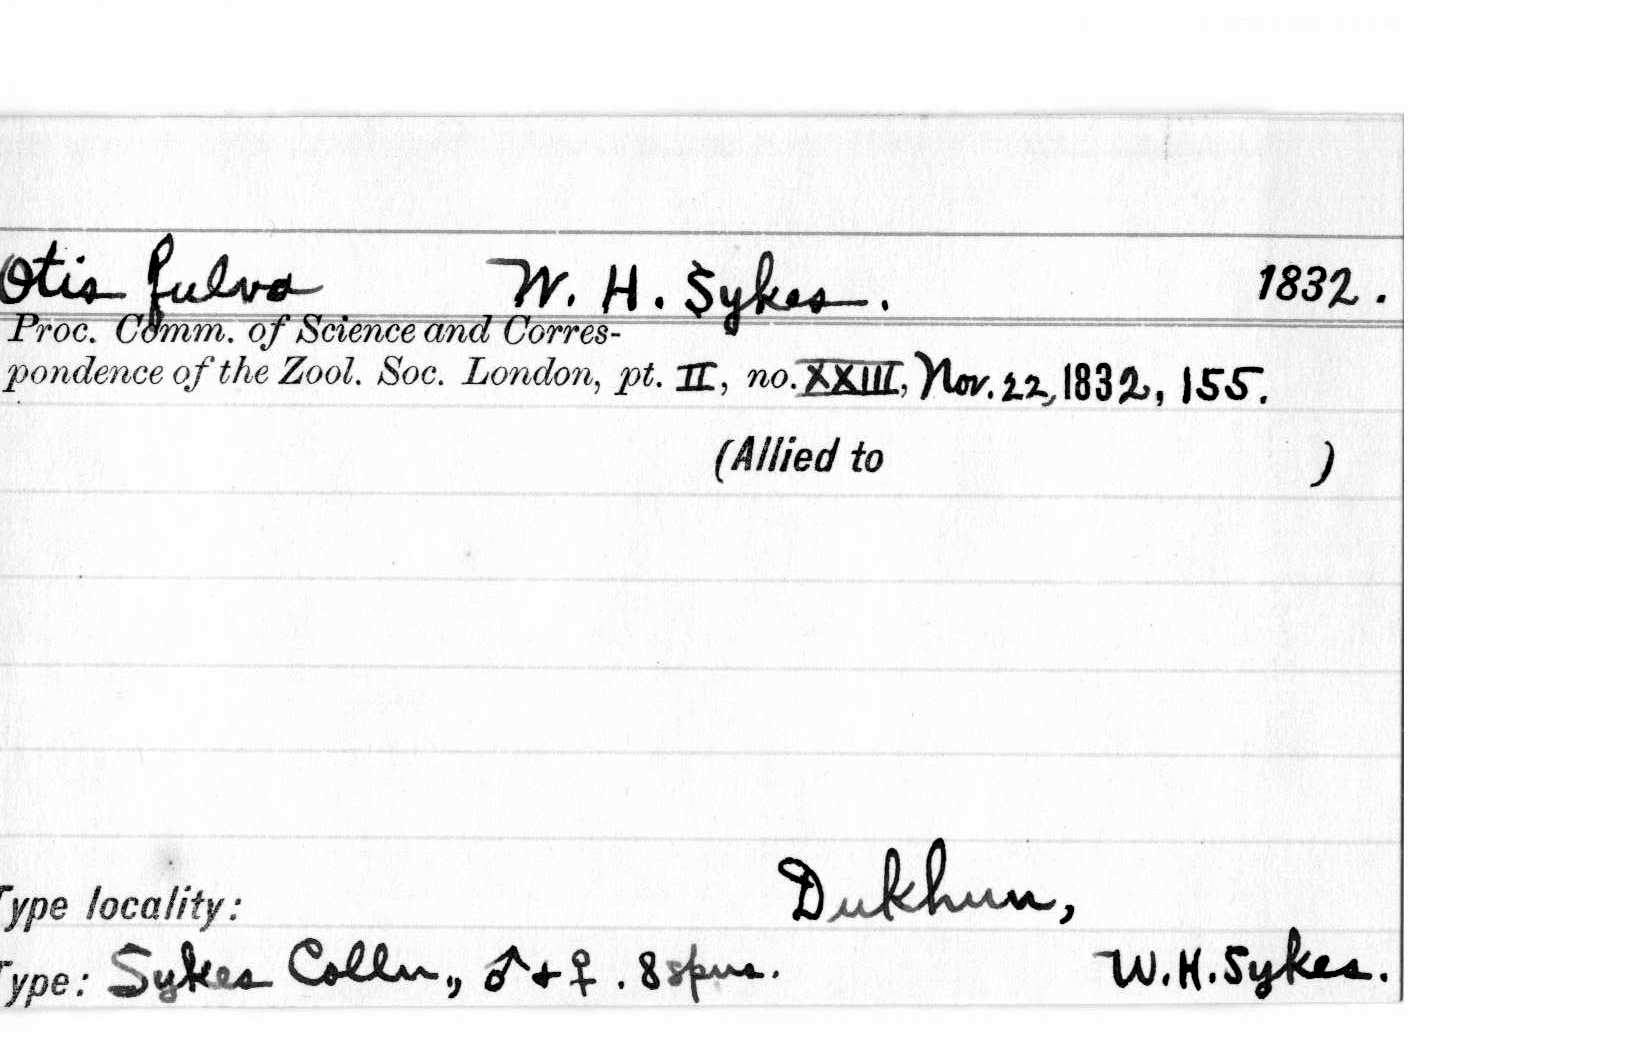 Otis fulva W. H. Sykes. 1832.
Proc. Comm. of Science and Corres-
pondence of the Zool. Soc. London, pt. II, no. XXIII, Nov. 22, 1832, 155.
(Allied to )
Type locality: Dukhun,
Type: Sykes Colln., ♂ + ♀. 8 spns. W. H. Sykes.